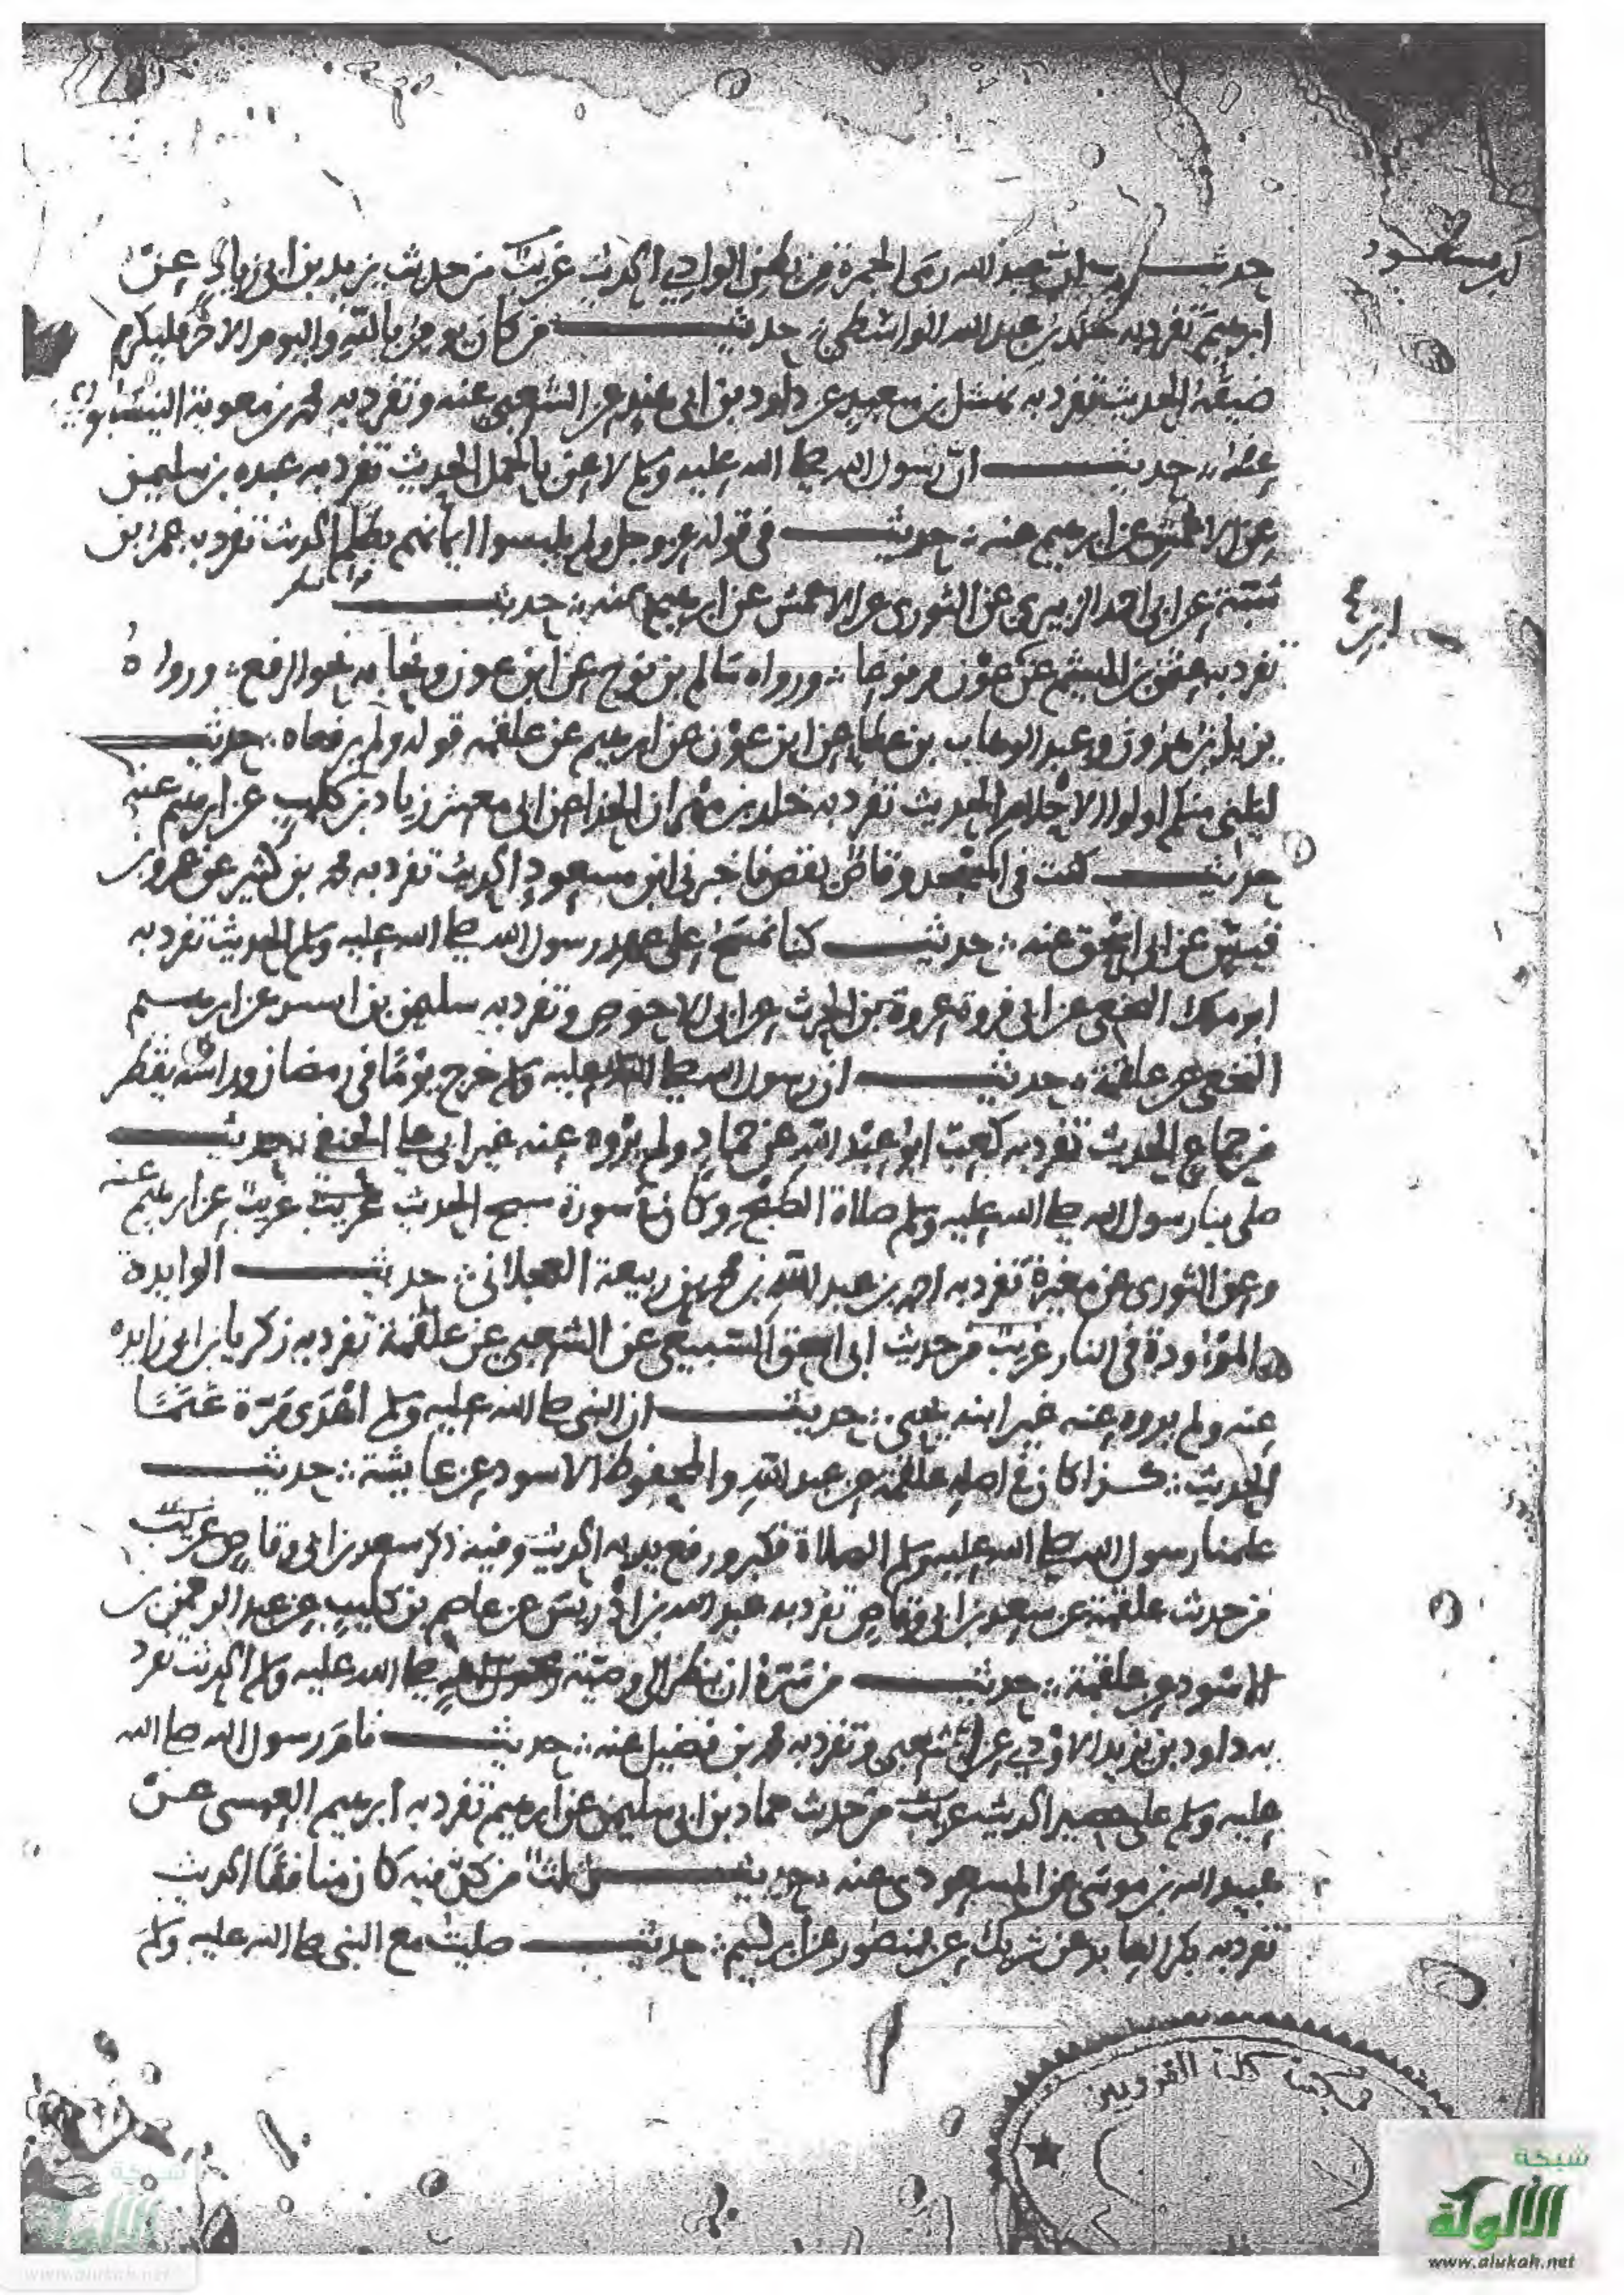 ابن مسعود
حديث رأيت عبد الله رمى الجمرة من بطن الوادي الحديث غريب من حديث يزيد بن ابي زياد عن
ابرهيم تفرد به خلد بن عبد الله الواسطي حديث من كان يومن بالله واليوم الاخر فليكرم
ضيفه الحديث تفرد به نهشل بن سعيد عن داود بن ابي هند عن الشعبي عنه وتفرد به محمد بن معوية النيسابوري
عنه حديث ان رسول الله صلى الله عليه وسلم لاعن بالحمل الحديث تفرد به عبده بن سليمن
عن الاعمش عن ابرهيم عنه حديث في قوله عز وجل ولم يلبسوا ايمانهم بظلم الحديث تفرد به عمر بن
شبة عن ابي احمد الزبيري عن الثوري عن الاعمش عن ابرهيم عنه حديث
تفرد به عثمن بن الهيثم عن عون مرفوعا ورواه سالم بن نوح عن ابن عون ونحا به نحو الرفع ورواه
يزيد بن هرون وعبد الوهاب بن عطا عن ابن عون عن ابرهيم عن علقمة قوله ولم يرفعاه حديث
ليليني منكم اولوا الاحلام الحديث تفرد به خلد بن مهران الحذا عن ابي معشر زياد بن كليب عن ابرهيم عنه
حديث كنت في المسجد وقاص يقص فاخبرني ابن مسعود الحديث تفرد به محمد بن كثير عن عمرو بن
قيس عن ابي اسحق عنه حديث كنا نمسح على عهد رسول الله صلى الله عليه وسلم الحديث تفرد به
ابو مالك النخعي عن ابي فروة عروة بن الحرث عن ابي الاحوص وتفرد به سليمن بن عن ابرهيم
النخعي عن علقمة حديث ان رسول الله صلى الله عليه وسلم خرج يوما في رمضان وراسه يقطر
من جماع الحديث تفرد به كعب ابو عبد الله عن حماد ولم يروه عنه غير ابي علي الحنفي حديث
صلى بنا رسول الله صلى الله عليه وسلم صلاة الصبح سورة سبح الحديث غريب غريب عن ابرهيم عنه
وعن الثوري عن مغيرة تفرد به احمد بن عبد الله بن محمد بن ربيعة العجلاني حديث الوايدة
والموؤدة في النار غريب من حديث ابي اسحق السبيعي عن الشعبي عن علقمة تفرد به زكريا بن ابي زايده
عنه ولم يروه عنه غير ابنه يحيى حديث ان النبي صلى الله عليه وسلم اهدى مرة غنما
الحديث كذا كان في اصله علقمة عن عبد الله والمحفوظ الاسود عن عايشة حديث
علمنا رسول الله صلى الله عليه وسلم الصلاة فكبر ورفع يديه الحديث وفيه ذكر سعد بن ابي وقاص غريب
من حديث علقمة عن سعد بن ابي وقاص تفرد به عبد الله بن ادريس عن عاصم بن كليب عن عبد الرحمن بن
الاسود عن علقمة حديث من سره ان ينظر الى وصية محمد صلى الله عليه وسلم الحديث تفرد
به داود بن يزيد الاودي عن الشعبي وتفرد به محمد بن فضيل عنه حديث نام رسول الله صلى الله
عليه وسلم على حصير الحديث غريب من حديث حماد بن ابي سليمن عن ابرهيم تفرد به ابرهيم العبسي عن
عبيد الله بن موسى عن المسعودي عنه حديث ثلث من كن فيه كان منافقا الحديث
تفرد به بكر العابد عن شريك عن منصور عن ابرهيم حديث صليت مع النبي صلى الله عليه وسلم
مكتبة كلية القرويين
شبكة
الألوكة
www.alukah.net